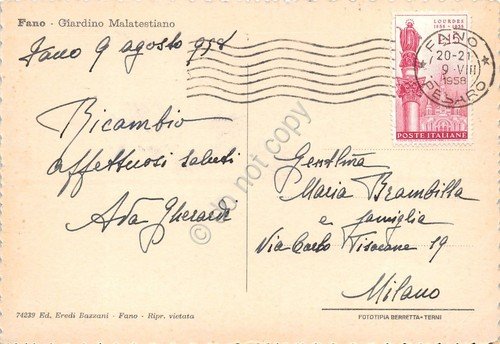 Fano - Giardino Malatestiano
Fano 9 agosto 958
Ricambio
affettuosi saluti
Ada Gherardi
LOURDES
1858 - 1958
POSTE ITALIANE
FANO
20-21
9 · VIII
1958
PESARO
Gent/ma
Maria Brambilla
e
famiglia
Via Carlo Pisacane 19
Milano
do not copy
74239 Ed. Eredi Bazzani - Fano - Ripr. vietata
FOTOTIPIA BERRETTA - TERNI